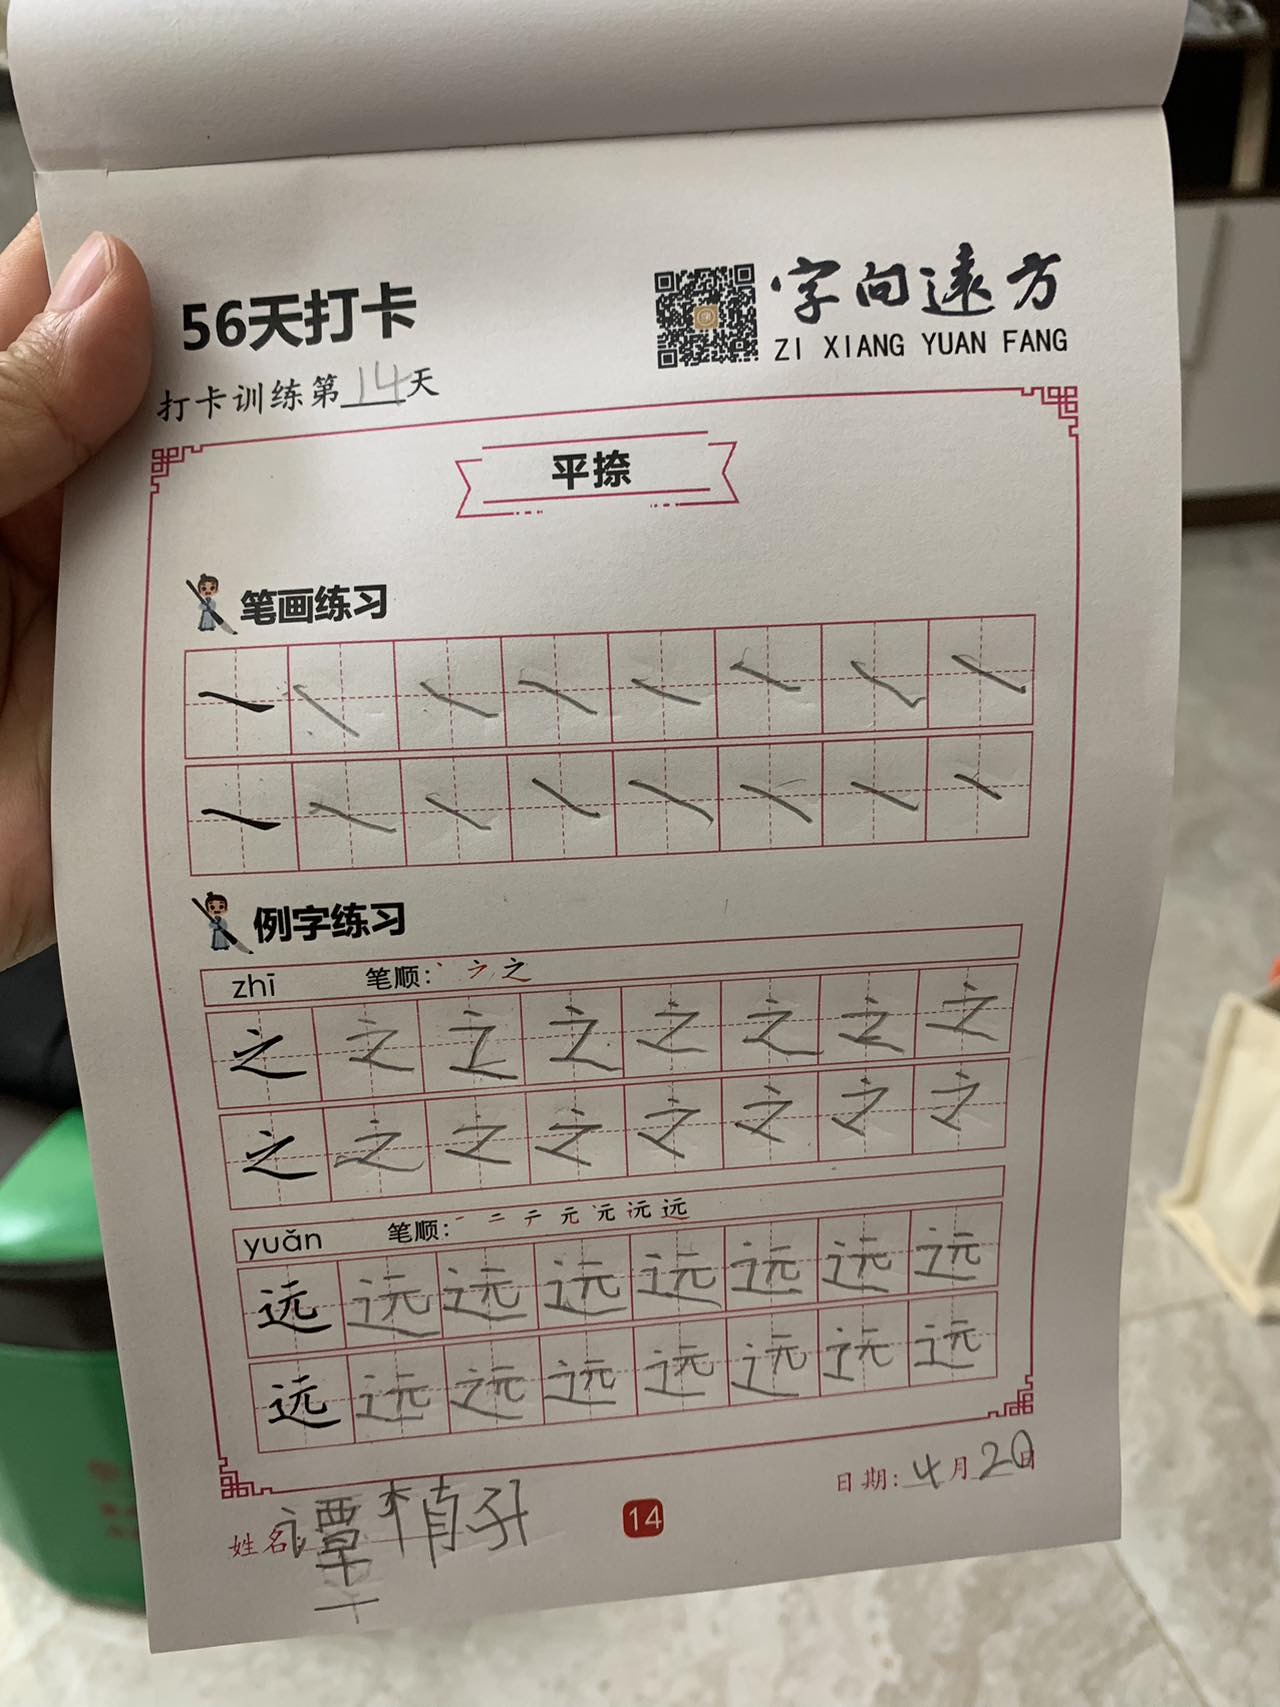 56天打卡
字向远方
ZI XIANG YUAN FANG
打卡训练第14天
平捺
笔画练习
例字练习
zhī 笔顺: 丶 ㇇ 之
之 之 之 之 之 之 之 之
之 之 之 之 之 之 之 之
yuǎn 笔顺: 一 二 テ 元 元 远 远
远 远 远 远 远 远 远 远
远 远 远 远 远 远 远 远
姓名: 谭
14
日期: 4月20日